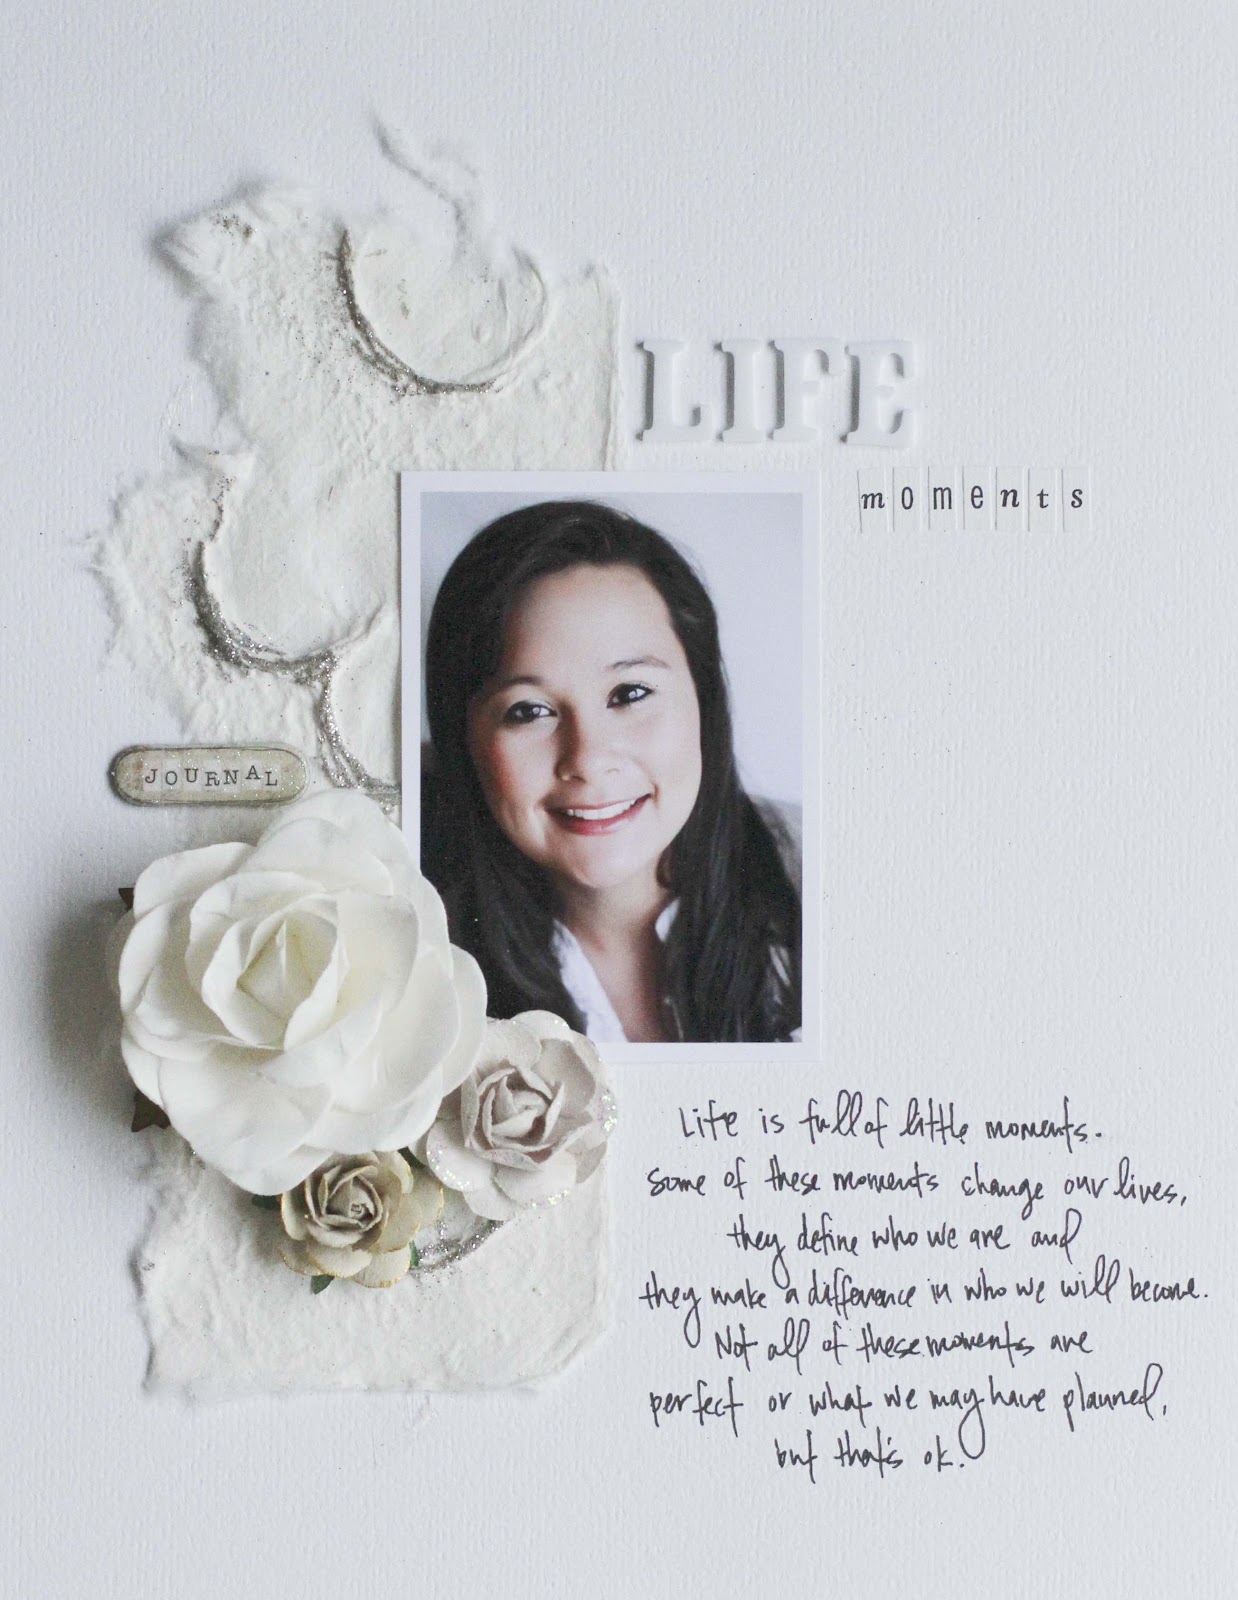 LIFE
moments
JOURNAL
Life is full of little moments.
Some of these moments change our lives,
they define who we are and
they make a difference in who we will become.
Not all of these moments are
perfect or what we may have planned,
but that's ok.